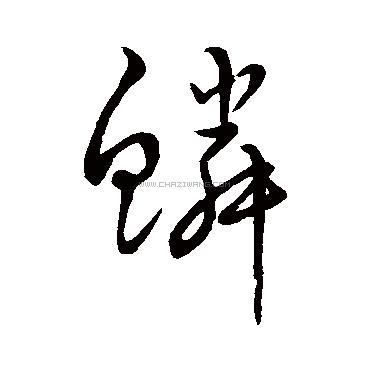 鳞
WWW.CHAZIWANG.COM